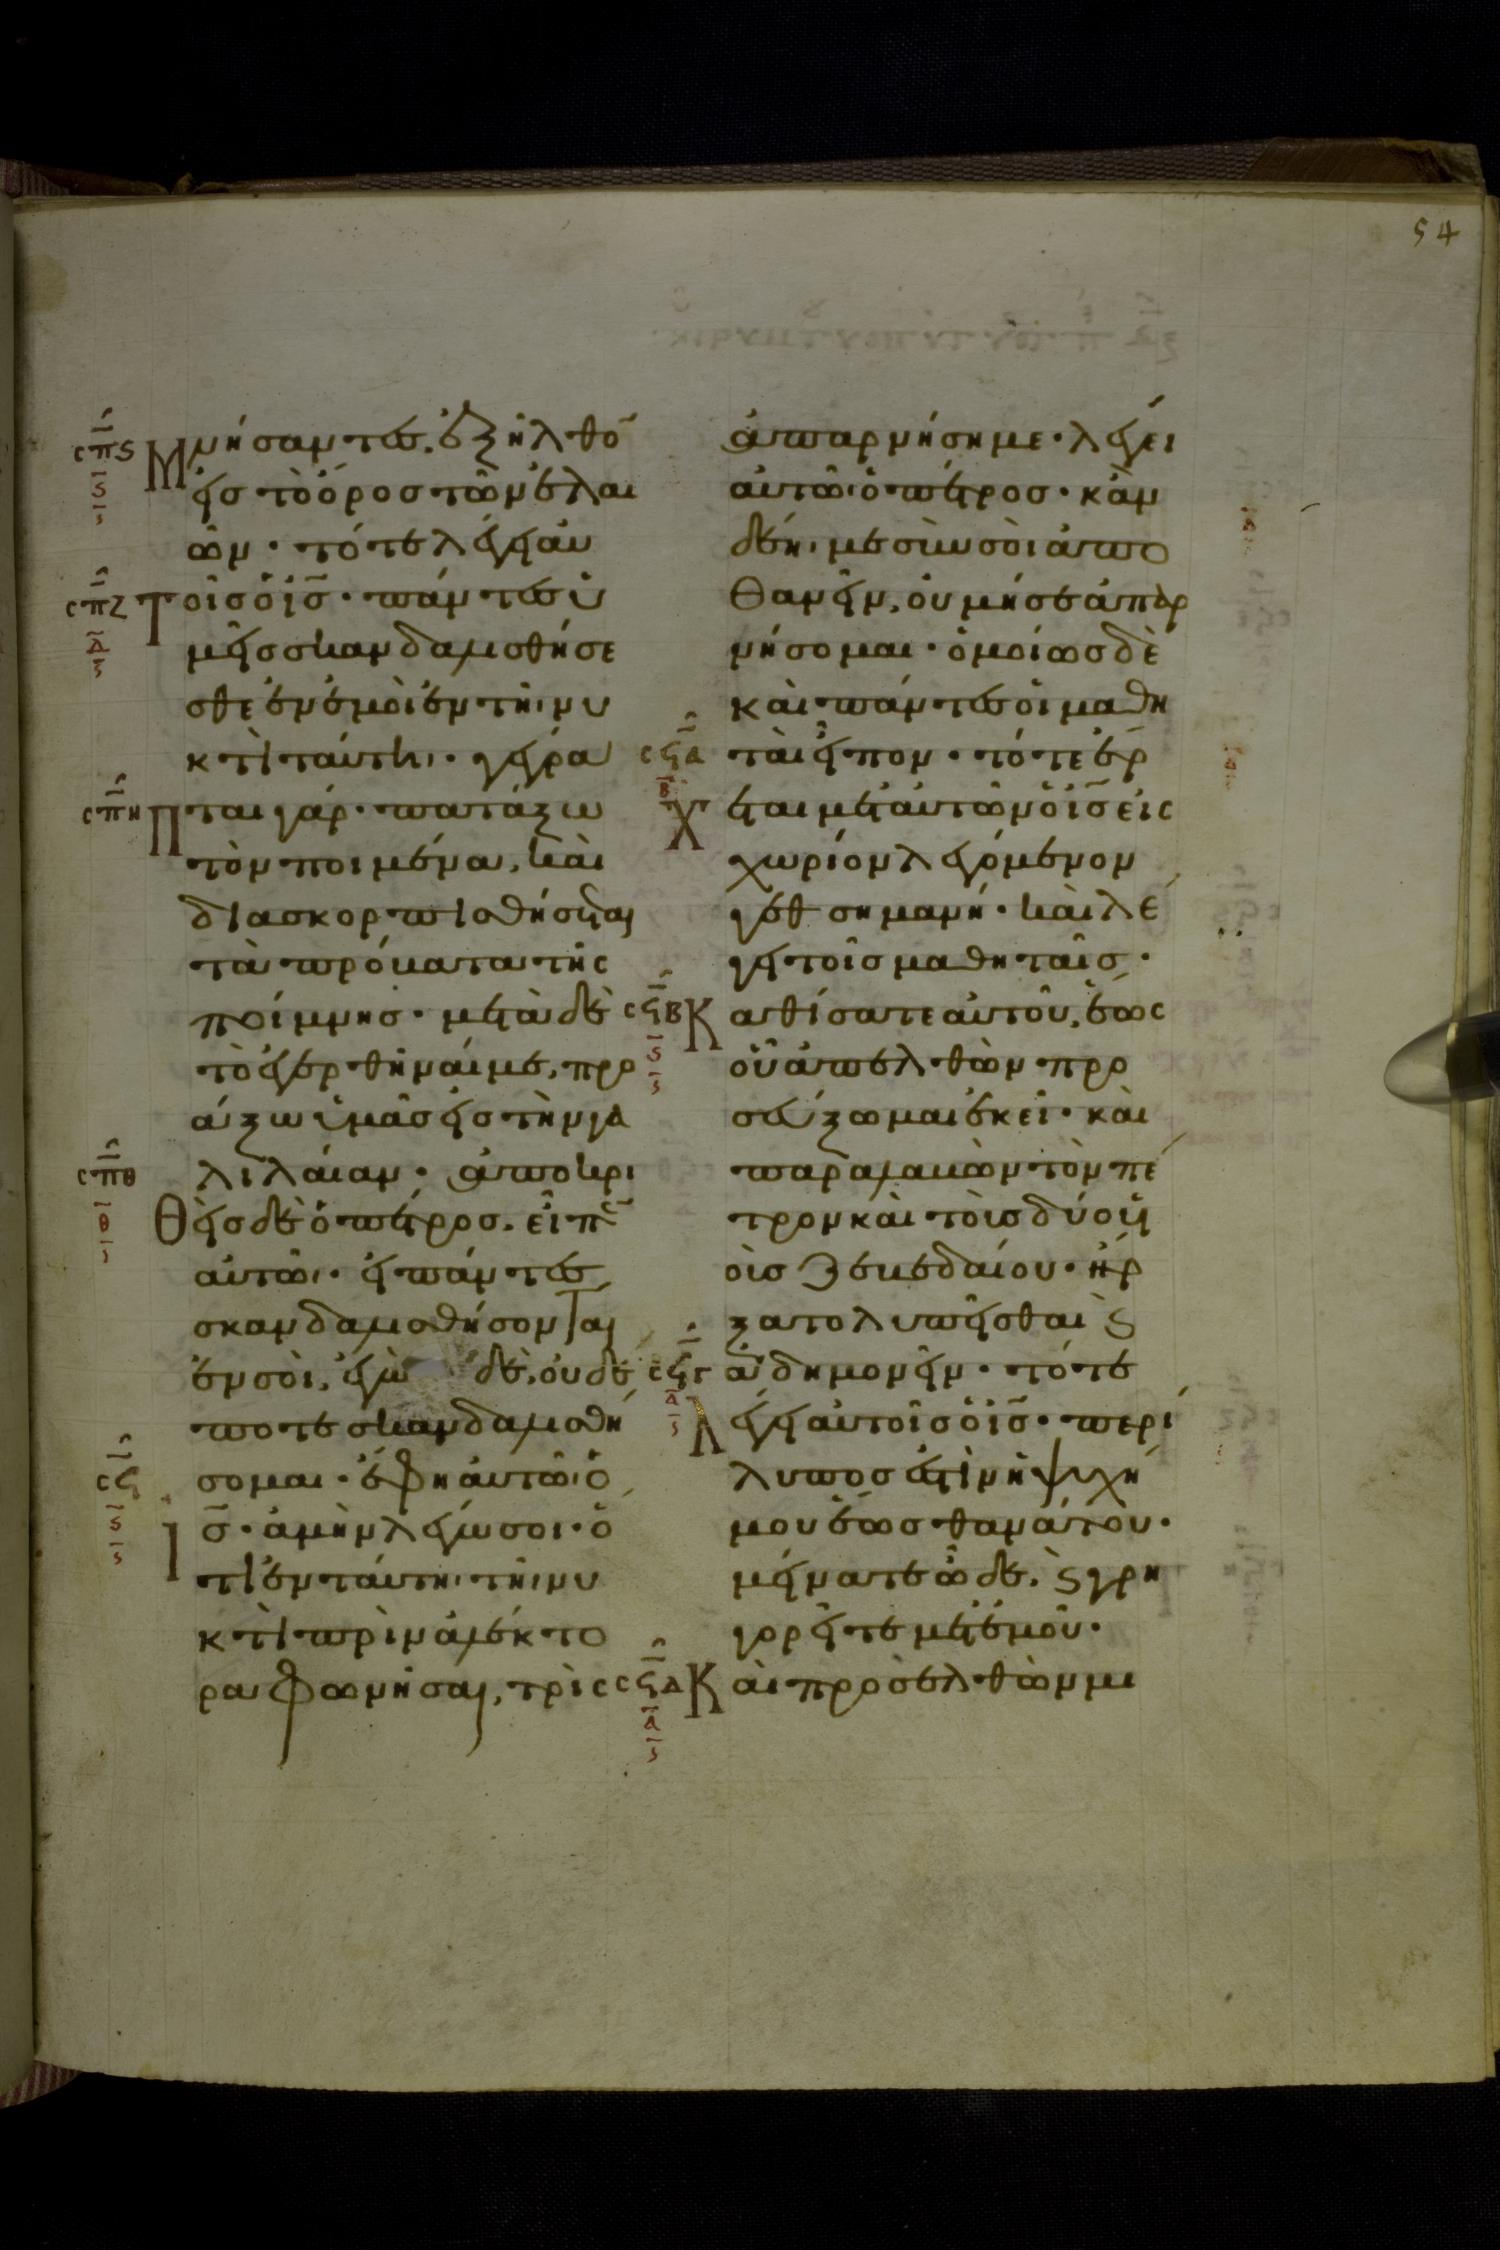 54
σπς Μνήσαντες. ἐξῆλθο̅
ς εἰς τὸ ὄρος τῶν ἐλαι
ῶν · τότε λέγει αὐ
σπζ Τοῖς ὁ ἰ̅ς̅ · πάντες ὑ
δ μεῖς σκανδαλισθήσε
σθε ἐν ἐμοὶ ἐν τῆι νυ
κτὶ ταύτηι · γέγρα
σπη Πται γάρ · πατάξω
τὸν ποιμένα, καὶ
διασκορπισθήσεται
τὰ πρόβατα τῆς
ποίμνης · μετὰ δὲ
τὸ ἐγερθῆναί με, προ
άξω ὑμᾶς εἰς τὴν γα
σπθ λιλαίαν · ἀποκρι
θ Θεὶς δὲ ὁ πέτρος. εἶπε̅
αὐτῶι · εἰ πάντες
σκανδαλισθήσονται
ἐν σοὶ, ἐγὼ δὲ, οὐδέ
ποτε σκανδαλισθή
σϟ σομαι · ἔφη αὐτῶι ὁ
ς Ι̅ς̅ · ἀμὴν λέγω σοι · ὅ
τι ἐν ταύτηι τῆι νυ
κτὶ πρὶν ἀλέκτο
ρα φωνῆσαι, τρὶς
ἀπαρνήσῃ με · λέγει
αὐτῶι ὁ πέτρος · κἂν
δέηι με σὺν σοὶ ἀπο
θανεῖν, οὐ μή σε ἀπαρ
νήσομαι · ὁμοίως δὲ
καὶ πάντες οἱ μαθη
σϟα ταὶ εἶπον · τότε ἔρ
β Χεται μετ αὐτῶν ὁ ἰ̅ς̅ εἰς
χωρίον λεγόμενον
γεθσημανή · καὶ λέ
γει τοῖς μαθηταῖς ·
σϟβ Καθίσατε αὐτοῦ, ἕως
ς οὗ ἀπελθὼν προ
σεύξωμαι ἐκεῖ · καὶ
παραλαβὼν τὸν πέ
τρον καὶ τοὺς δύο υἱ
οὺς ζεβεδαίου · ἤρ
ξατο λυπεῖσθαι ϗ
σϟγ ἀδημονεῖν · τότε
δ Λέγει αὐτοῖς ὁ ἰ̅ς̅ · περί
λυπός ἐστὶν ἡ ψυχή
μου ἕως θανάτου ·
μείνατε ὧδε, ϗ γρη
γορεῖτε μετ ἐμοῦ ·
σϟδ Καὶ προσελθὼν μι
α